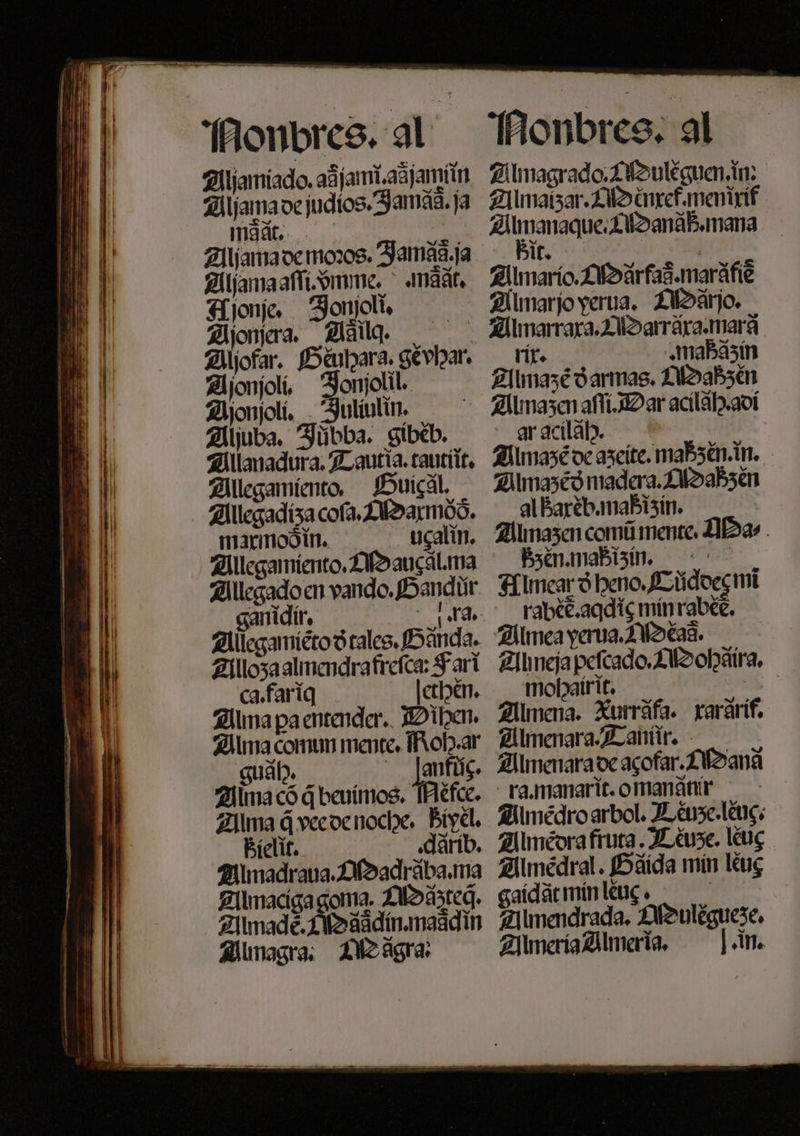 Nonbres. al
Aljamiado. aâjami. aâjamiîn
Aljama de judios. Jamââ. ja
mâât.
Aljama de moros. Jamââ. ja
Aljama assi. ômme. mâât.
Aljonje. Jonjoli.
Aljonjera. Aâilq.
Aljofar. Gêuhara. gêvhar.
Aljonjoli. Jonjolil.
Aljonjoli. Juliulin.
Aljuba. Jûbba. gibêb.
Allanadura. Tautia. tautiît.
Allegamiento. Guiçâl.
Allegadiza cosa. Maxmoôô.
maxmoôîn. uçalin.
Allegamiento. Mauçâl. ma
Allegado en vando. Gandûr
ganidir. ra.
Allegamiêto ô tales. Gânda.
Alloza almendra fresca: Fari
ca. fariq
Alma pa entender. Dihen. ethên.
Alma comun mente. Roh. ar
guâh. anfûç.
Alma cô q̃ beuimos. Nêfce.
Alma q̃ vee de noche. Biyêl.
Bielit. dârib.
Almadraua. Madrâba. ma
Almaciga goma. Mâzteq̃.
Almadé. Mââdîn. maâdîn
Almagra. Mâgra:
Nonbres. al
Almagrado. Mulêguen. în:
Almaizar. Mênxef. menîxif
Almanaque. Manâh. mana
hit.
Almario. Mârfaâ. marâfiê
Almarjo yerua. Mârjo.
Almarraxa. Marrâxa. mara
rix. mahâzin
Almazê ô armas. Mahzên
Almazen assi. Dar acilâh. adi
ar acilâh.
Almazê de azeite. mahzên. în.
Almazê ô madera. Mahzên
al harêb. mahizin.
Almazen comũ mente. Ma
hzên. mahizin.
Almear ô heno. Cûdoeç mi
rabêê. aqdiç min rabêê.
Almea yerua. Mêaâ.
Almeja pescado. Mohâira.
mohairit.
Almena. Xurrâfa. xarârif.
Almenara. Tanîir.
Almenara de açofar. Manâ
ra. manarit. o manânir
Almêdro arbol. Lêuze. lêuç.
Almêdra fruta. Lêuze. lêuç
Almêdral. Gâida min lêuç
gaidât min lêuç.
Almendrada. Mulêgueze.
Almeria Almeria. în.